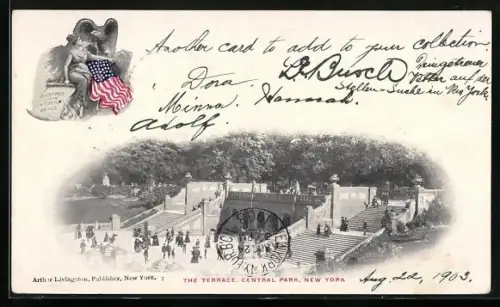 Another card to add to your collection,
Dora.
D. Busch
Minna.
Hannah.
Adolf.
Stellen-Suche in New York.
Arthur Livingston, Publisher, New York.
THE TERRACE, CENTRAL PARK, NEW YORK
Aug. 22, 1903.